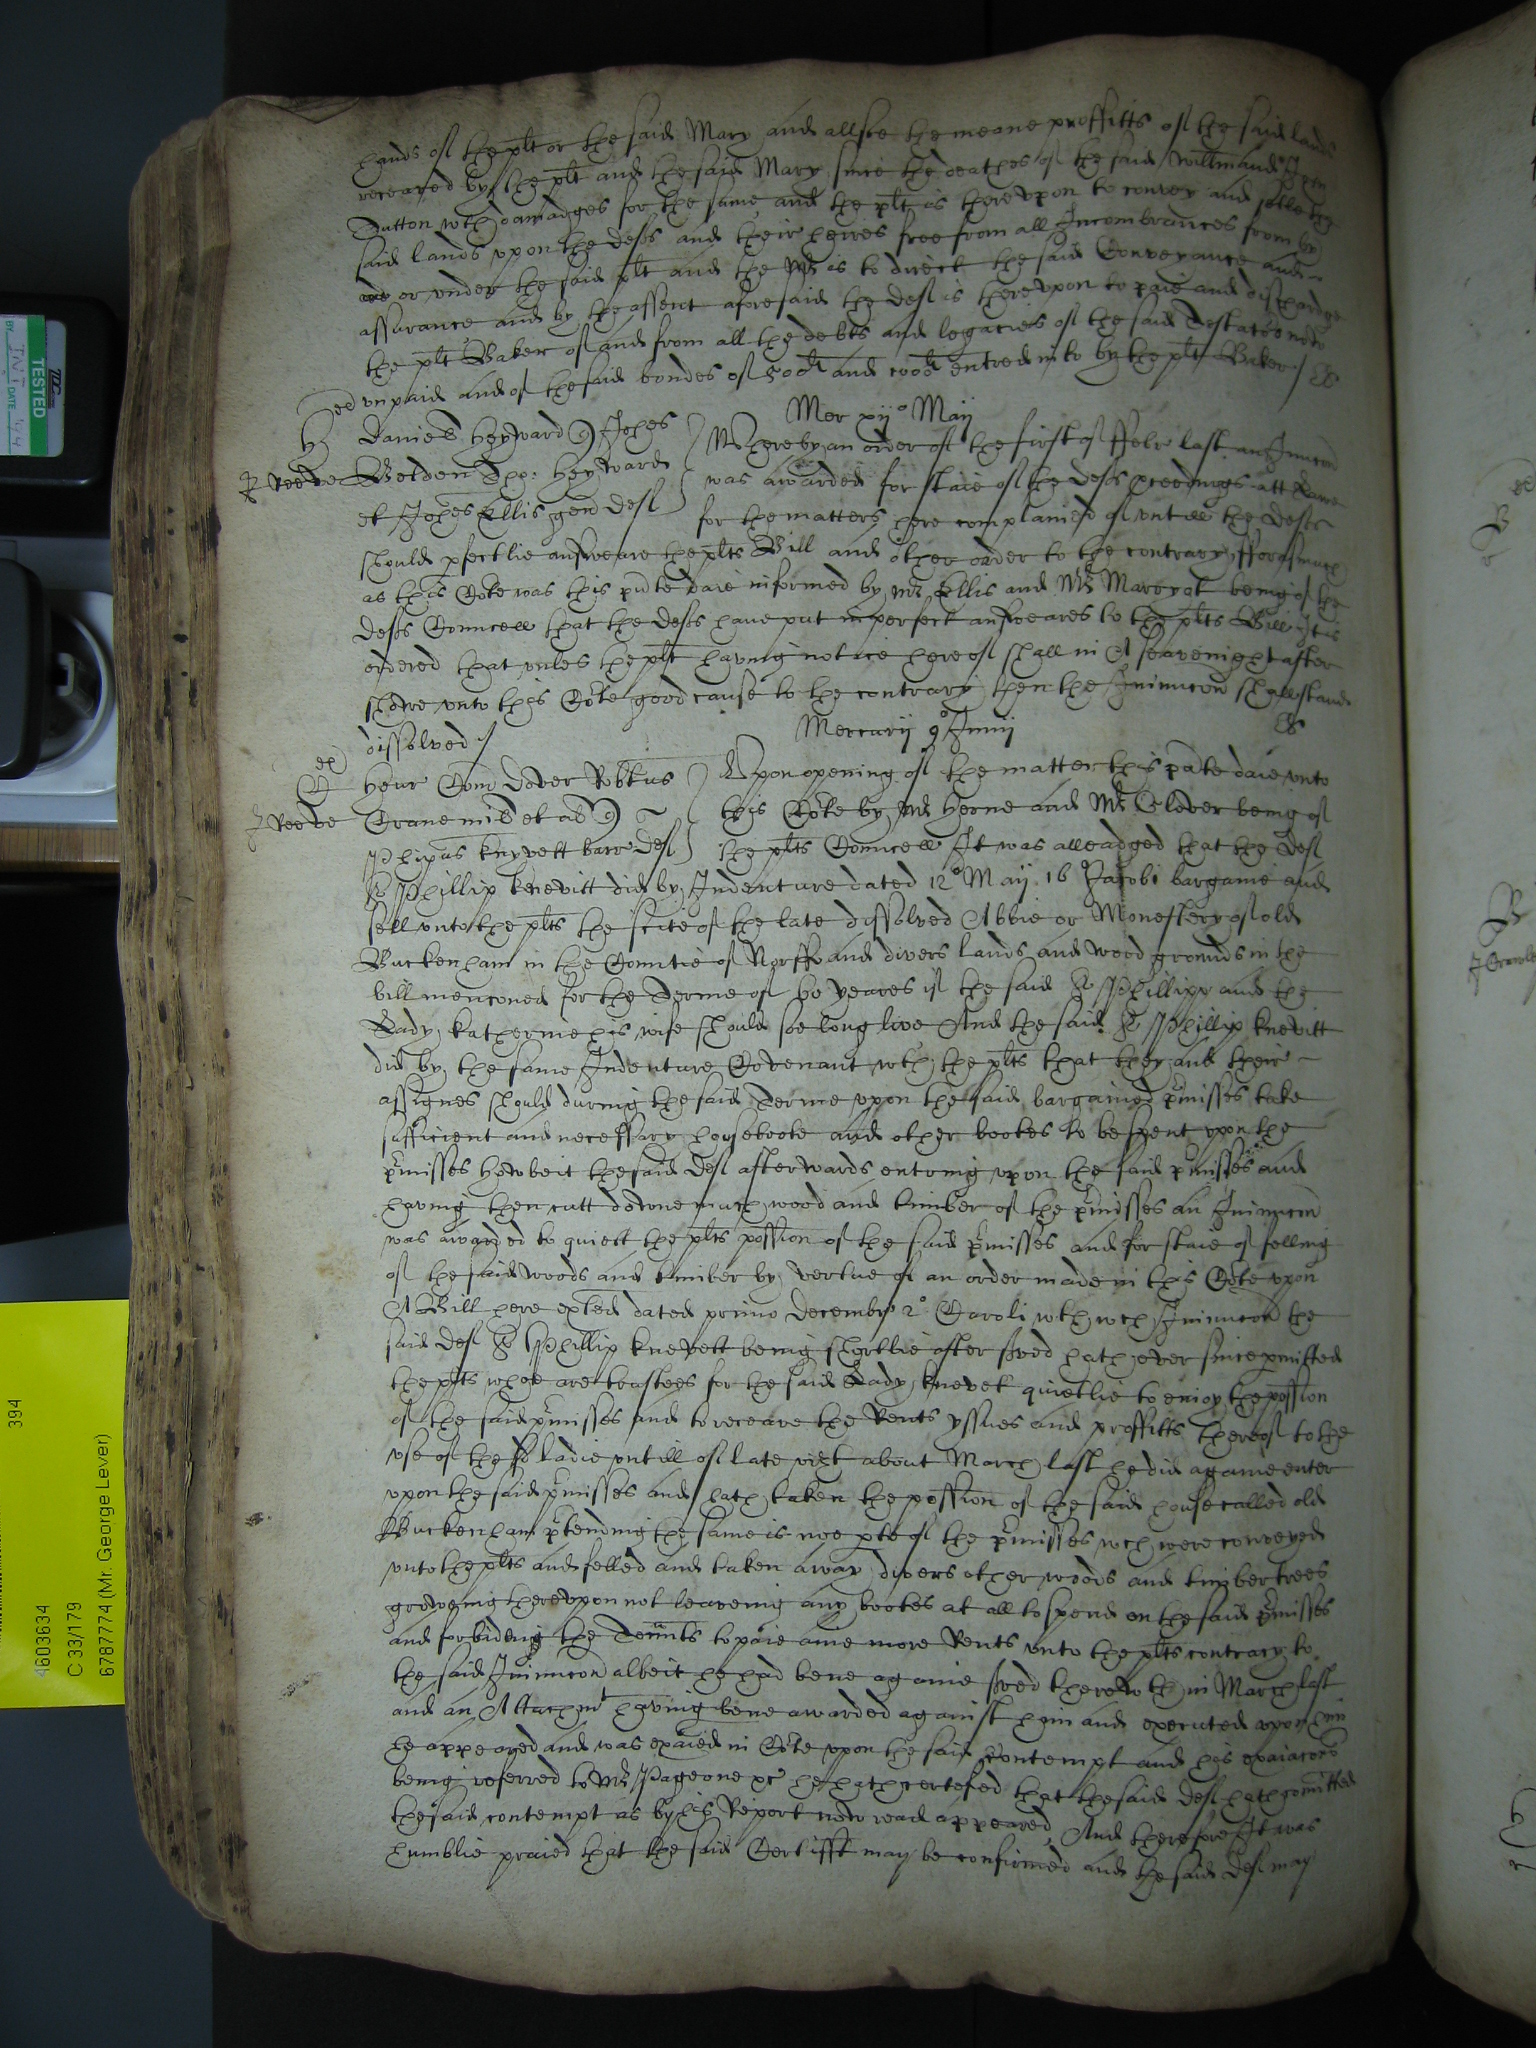 hands of the plt or the said Mary and allsoe the meane proffitts of the said lands
receaved by the plt and the said Mary since the deathes of the said Willm and John
Dutton wth damadges for the same and the plt is thereupon to convey and settle the
said lands upon the defts and their heires free from all Incombrances from by
or under the said plt and the Mr is to direct the said Conveyance and
assurance and by the assent aforesaid the deft is thereupon to paie and discharge
the plt Baker of and from all the debts and legacies of the said Testator now
unpaid and of the said bondes of 500li and entred into by the plt Baker /
Mer xijo Maij
Daniel Heyward Johes
Reeve
Belden Heyward
et Johes Ellis gen def
Whereby an order of the first of ffebr last an Iniuncon
was awarded for staie of the defts pceedings att Lawe
for the matters here complained of untill the defts
should pfectlie answeare the plts Bill and other order to the contrary fforasmuch
as this Cote was this pnte daie informed by Mr Ellis and Mr being of the
defts Councell that the defts have put in perfect answeares to the plts Bill It is
ordered that unles the plt having notice hereof shall in A seavenight after
shewe unto this Cote good cause to the contrary then the Iniuncon shall stand
dissolved /
Mercurij 9o Junij
Henr Com Dover Robtus
Reeve
Crane mil et al
Phipus Knyvett barr def
Upon opening of the matter this pnte daie unto
this Cote by Mr Herne and Mr Glover being of
the plts Councell It was alleadged that the deft
Sr Phillip Knevitt did by Indenture dated 12o Maij 16 Jacobi bargaine and
sell unto the plts the scite of the late dissolved Abbie or Monestery of old
Buckenham in the Countie of Norff and divers lands and wood grounds in the
bill menconed for the Terme of 60 yeares if the said Sr Phillipp and the
Lady Katherine his wife should soe long live And the said Sr Phillip Knevitt
did by the same Indenture Covenant wth the plts that they and their
assignes should during the said Terme upon the said bargained pmisses take
sufficient and necessary houseboote and other bootes to be spent upon the
pmisses Howbeit the said deft afterwards entring upon the said pmisses and
having then cutt downe much wood and timber of the pmisses an Iniuncon
was awarded to quiett the plts possion of the said pmisses and for staie of felling
of the said woods and timber by vertue of an order made in this Cote upon
A Bill here exhted dated primo Decembr 2o Caroli wth wch Iniuncon the
said deft Sr Phillip Knevett being shortlie after served hath ever since pmitted
the plts whoe are trustees for the said Lady Knevet quietlie to enioy the possion
of the said pmisses and to receave the Rents yssues and proffitts thereof to the
use of the sd ladie untill of late vizt about March last he did againe enter
upon the said pmisses and hath taken the possion of the said house called old
Buckenham ptending the same is noe pte of the pmisses wch were conveyed
unto the plts and felled and taken away divers other woods and timber trees
groweing thereupon not leaveing any bootes at all to spend on the said pmisses
and forbiding the Tennts to paie anie more Rents unto the plts contrary to
the said Iniuncon albeit he had bene againe served therewth in March last
and an Attachmt having bene awarded against him and executed upon him
he appeared and was exaied in Cote upon the said contempt and his exaiacons
being referred to Mr Page one &c he hath certefied that the said deft hath comitted
the said contempt as by his Report now read appeared And therefore It was
humblie praied that the said Certifft may be confirmed and the said deft may
TESTED
DATE
394
4603634
C 33/179
6787774 (Mr. George Lever)